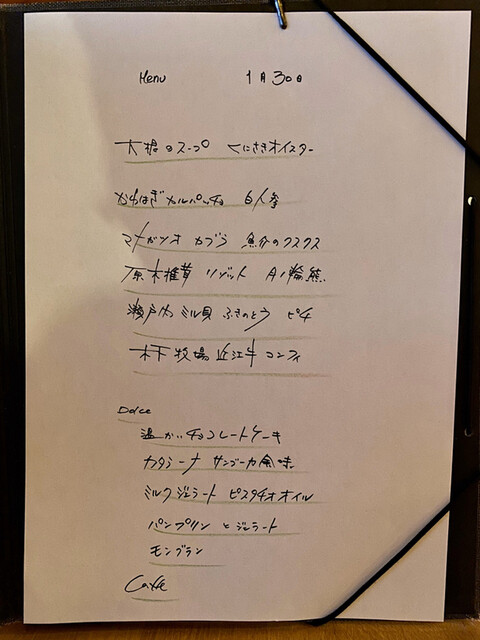 Menu 1月30日
大根のスープ くにさきオイスター
かわはぎ カルパッチョ 白人参
マナガツオ カブラ 魚介のクスクス
原木椎茸 リゾット 月ノ輪熊
瀬戸内 ミル貝 ふきのとう ピチ
木下牧場 近江牛 コンフィ
Dolce
温かいチョコレートケーキ
カタラーナ サンブーカ風味
ミルクジェラート ピスタチオオイル
パンプリン とジェラート
モンブラン
Caffe